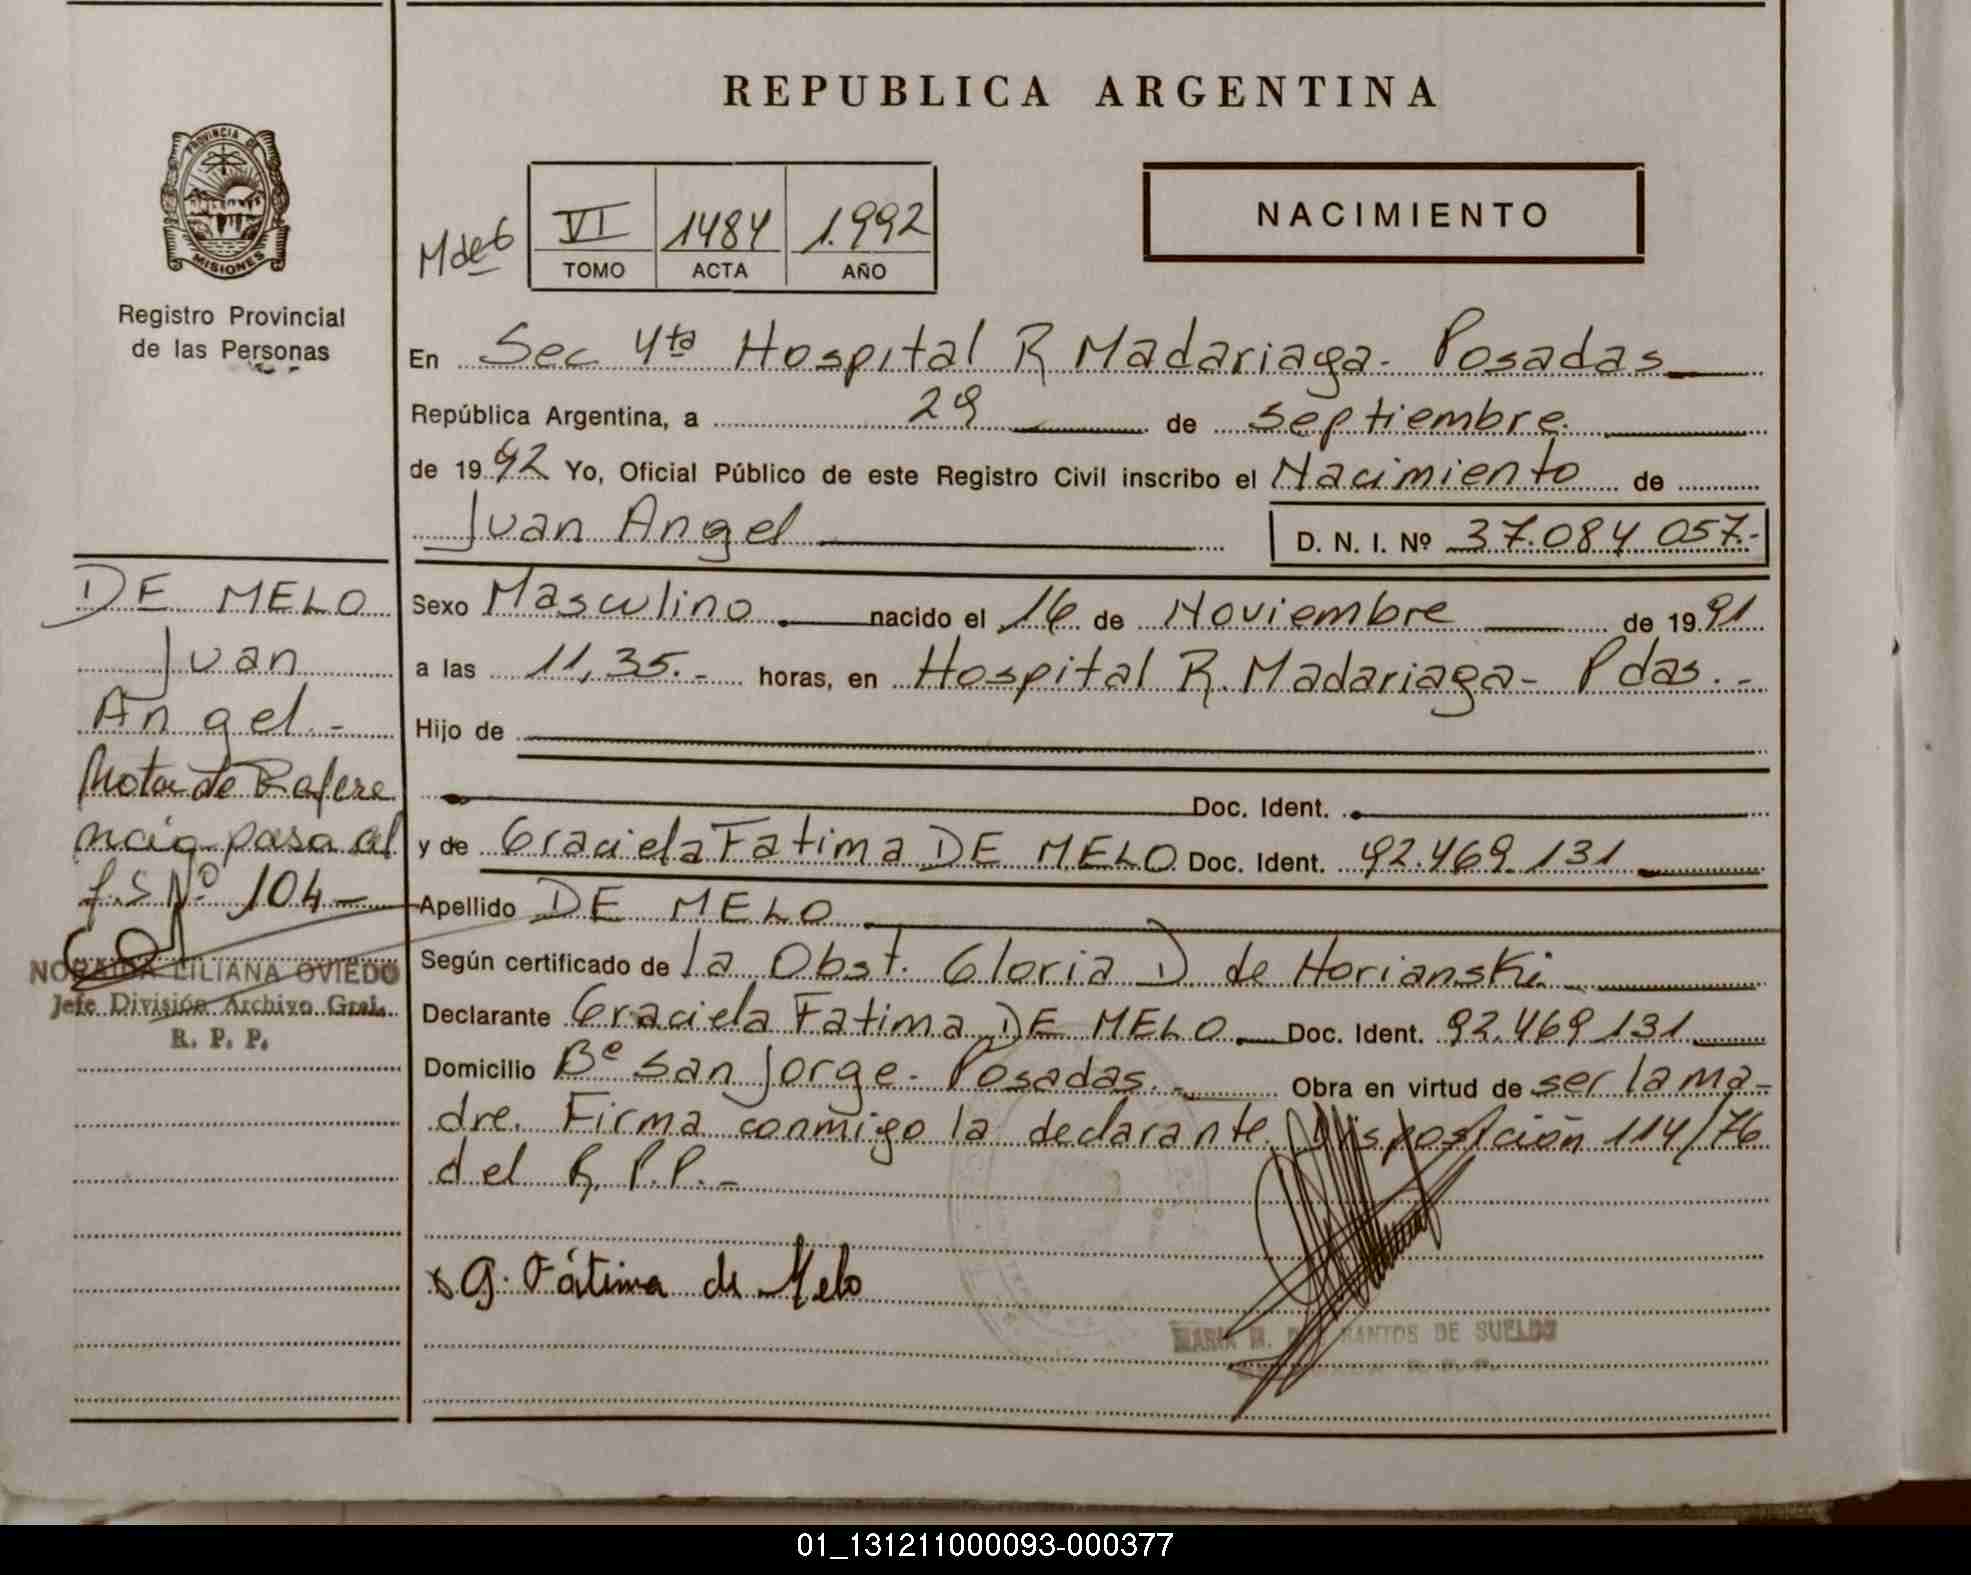 REPUBLICA ARGENTINA
PROVINCIA DE
MISIONES
Registro Provincial
de las Personas
M de 6
VI 1484 1.992
TOMO ACTA AÑO
NACIMIENTO
En Sec 4ta Hospital R Madariaga - Posadas
República Argentina, a 29 de septiembre
de 1992 Yo, Oficial Público de este Registro Civil inscribo el Nacimiento de
Juan Angel
D. N. I. Nº 37.084 057.-
Sexo Masculino nacido el 16 de Noviembre de 1991
a las 11,35.- horas, en Hospital R. Madariaga - Pdas. -
Hijo de
Doc. Ident.
y de Graciela Fatima DE MELO Doc. Ident. 92.469.131
Apellido DE MELO
Según certificado de la Obst. Gloria D de Horianski
Declarante Graciela Fatima DE MELO Doc. Ident. 92.469 131
Domicilio Bº San Jorge - Posadas. - Obra en virtud de ser la ma-
dre. Firma conmigo la declarante. Disposición 114/76
del R.P.P. -
x G. Fátima de Melo
MARIA M. DOS SANTOS DE SUELDO
DE MELO
Juan
Angel. -
Nota de Refere
ncia pasa al
f.S Nº 104 -
NORAIDA LILIANA OVIEDO
Jefe División Archivo Gral.
R. P. P.
01_131211000093-000377